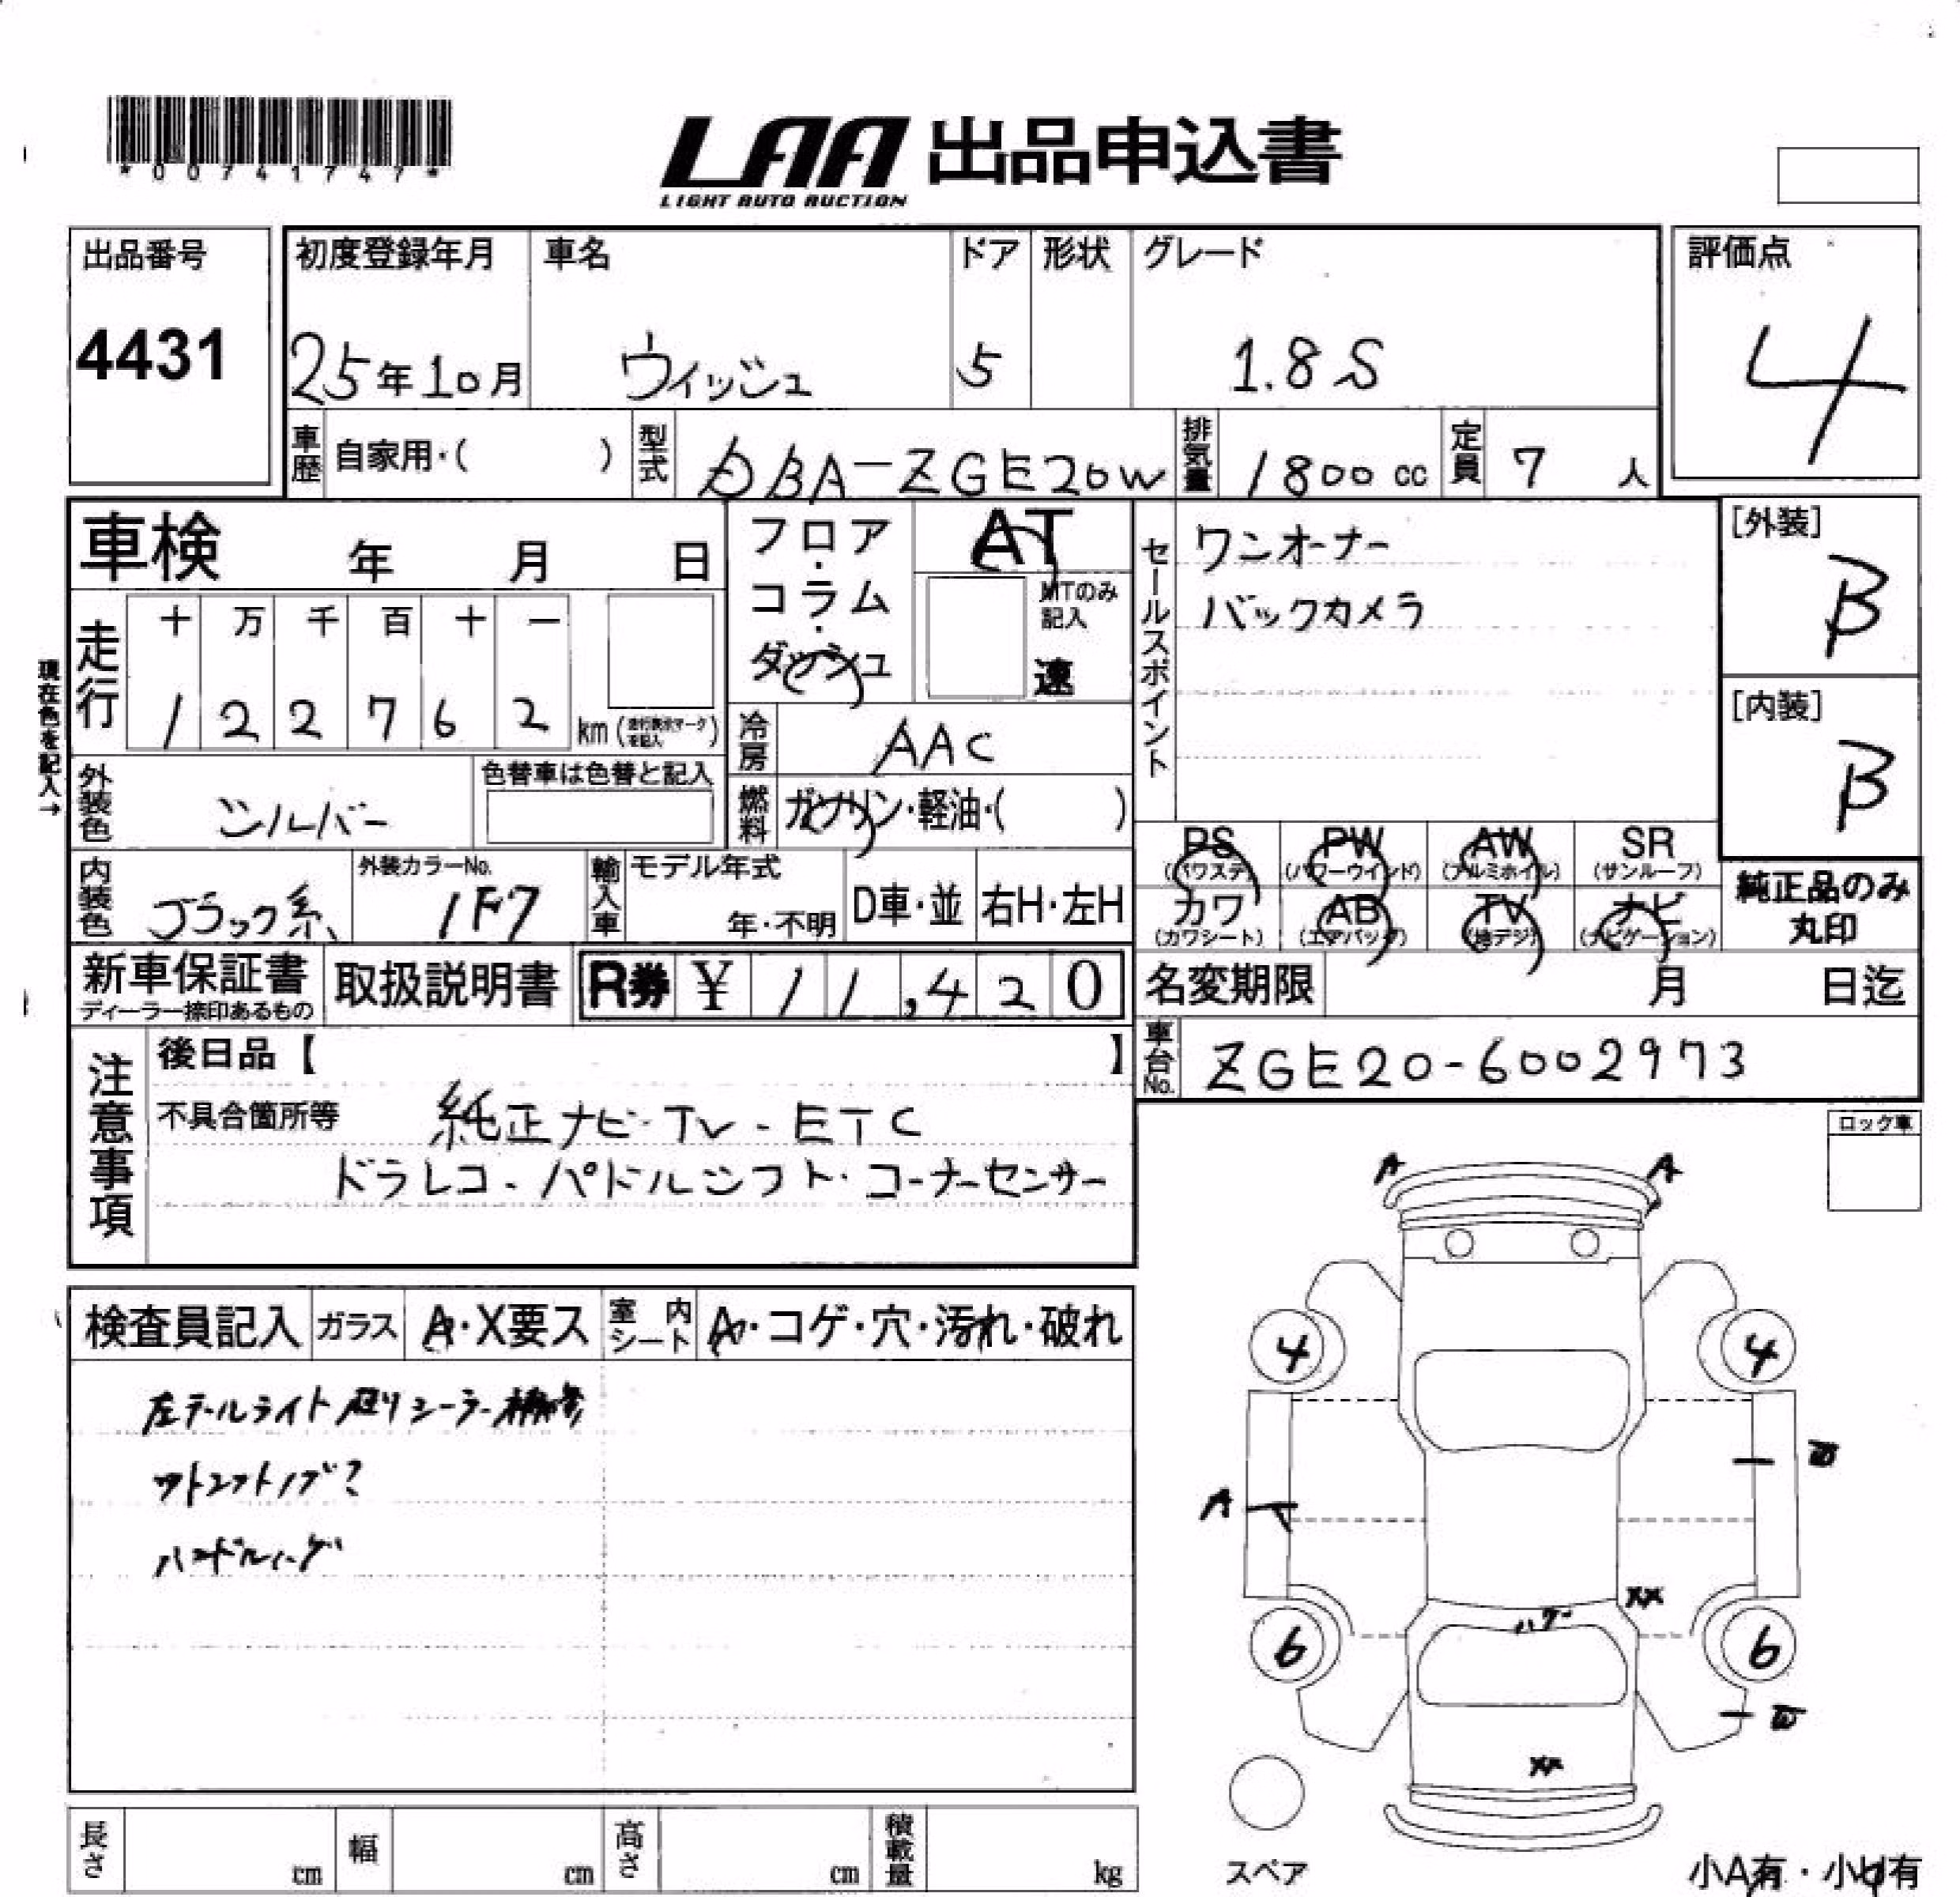 *00741747*
LAA 出品申込書
LIGHT AUTO AUCTION
出品番号
4431
初度登録年月
25年10月
車名
ウィッシュ
ドア
5
形状
グレード
1.8S
評価点
4
車歴
自家用・( )
型式
DBA-ZGE20W
排気量
1800 cc
定員
7 人
車検 年 月 日
フロア・コラム・ダッシュ
AT
MTのみ記入
速
セールスポイント
ワンオーナー
バックカメラ
[外装]
B
[内装]
B
現在色を記入→
走行
十 万 千 百 十 一
1 2 2 7 6 2
km(走行表示マークを記入)
冷房
AAC
外装色
シルバー
色替車は色替と記入
燃料
ガソリン・軽油・( )
PS (パワステ)
PW (パワーウインド)
AW (アルミホイル)
SR (サンルーフ)
カワ (カワシート)
AB (エアバッグ)
TV (地デジ)
ナビ (ナビゲーション)
純正品のみ丸印
内装色
ブラック系
外装カラーNo.
1F7
輸入車
モデル年式
年・不明
D車・並
右H・左H
新車保証書
ディーラー捺印あるもの
取扱説明書
R券 ¥11,420
名変期限 月 日迄
車台No.
ZGE20-6002973
注意事項
後日品【 】
不具合箇所等
純正ナビ・TV・ETC
ドラレコ・パドルシフト・コーナーセンサー
ロック車
検査員記入
ガラス
A・X要ス
室内シート
A・コゲ・穴・汚れ・破れ
左テールライト廻りシーラー補修
ハンドル
A A
4 4
A
XX
6 6
W
XX
スペア
小A有・小U有
長さ cm
幅 cm
高さ cm
積載量 kg